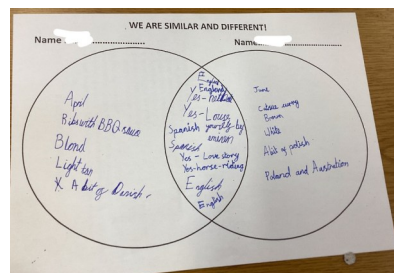 WE ARE SIMILAR AND DIFFERENT!
Name
Name
April
Ribs with BBQ
Blond
Light tan
X A bit of Danish
English
Yes -
Yes - Louise
Spanish
Spanish
Yes - Love story
Yes - horse-riding
English
English
June
curry
Brown
White
A bit of polish
Poland and Australian